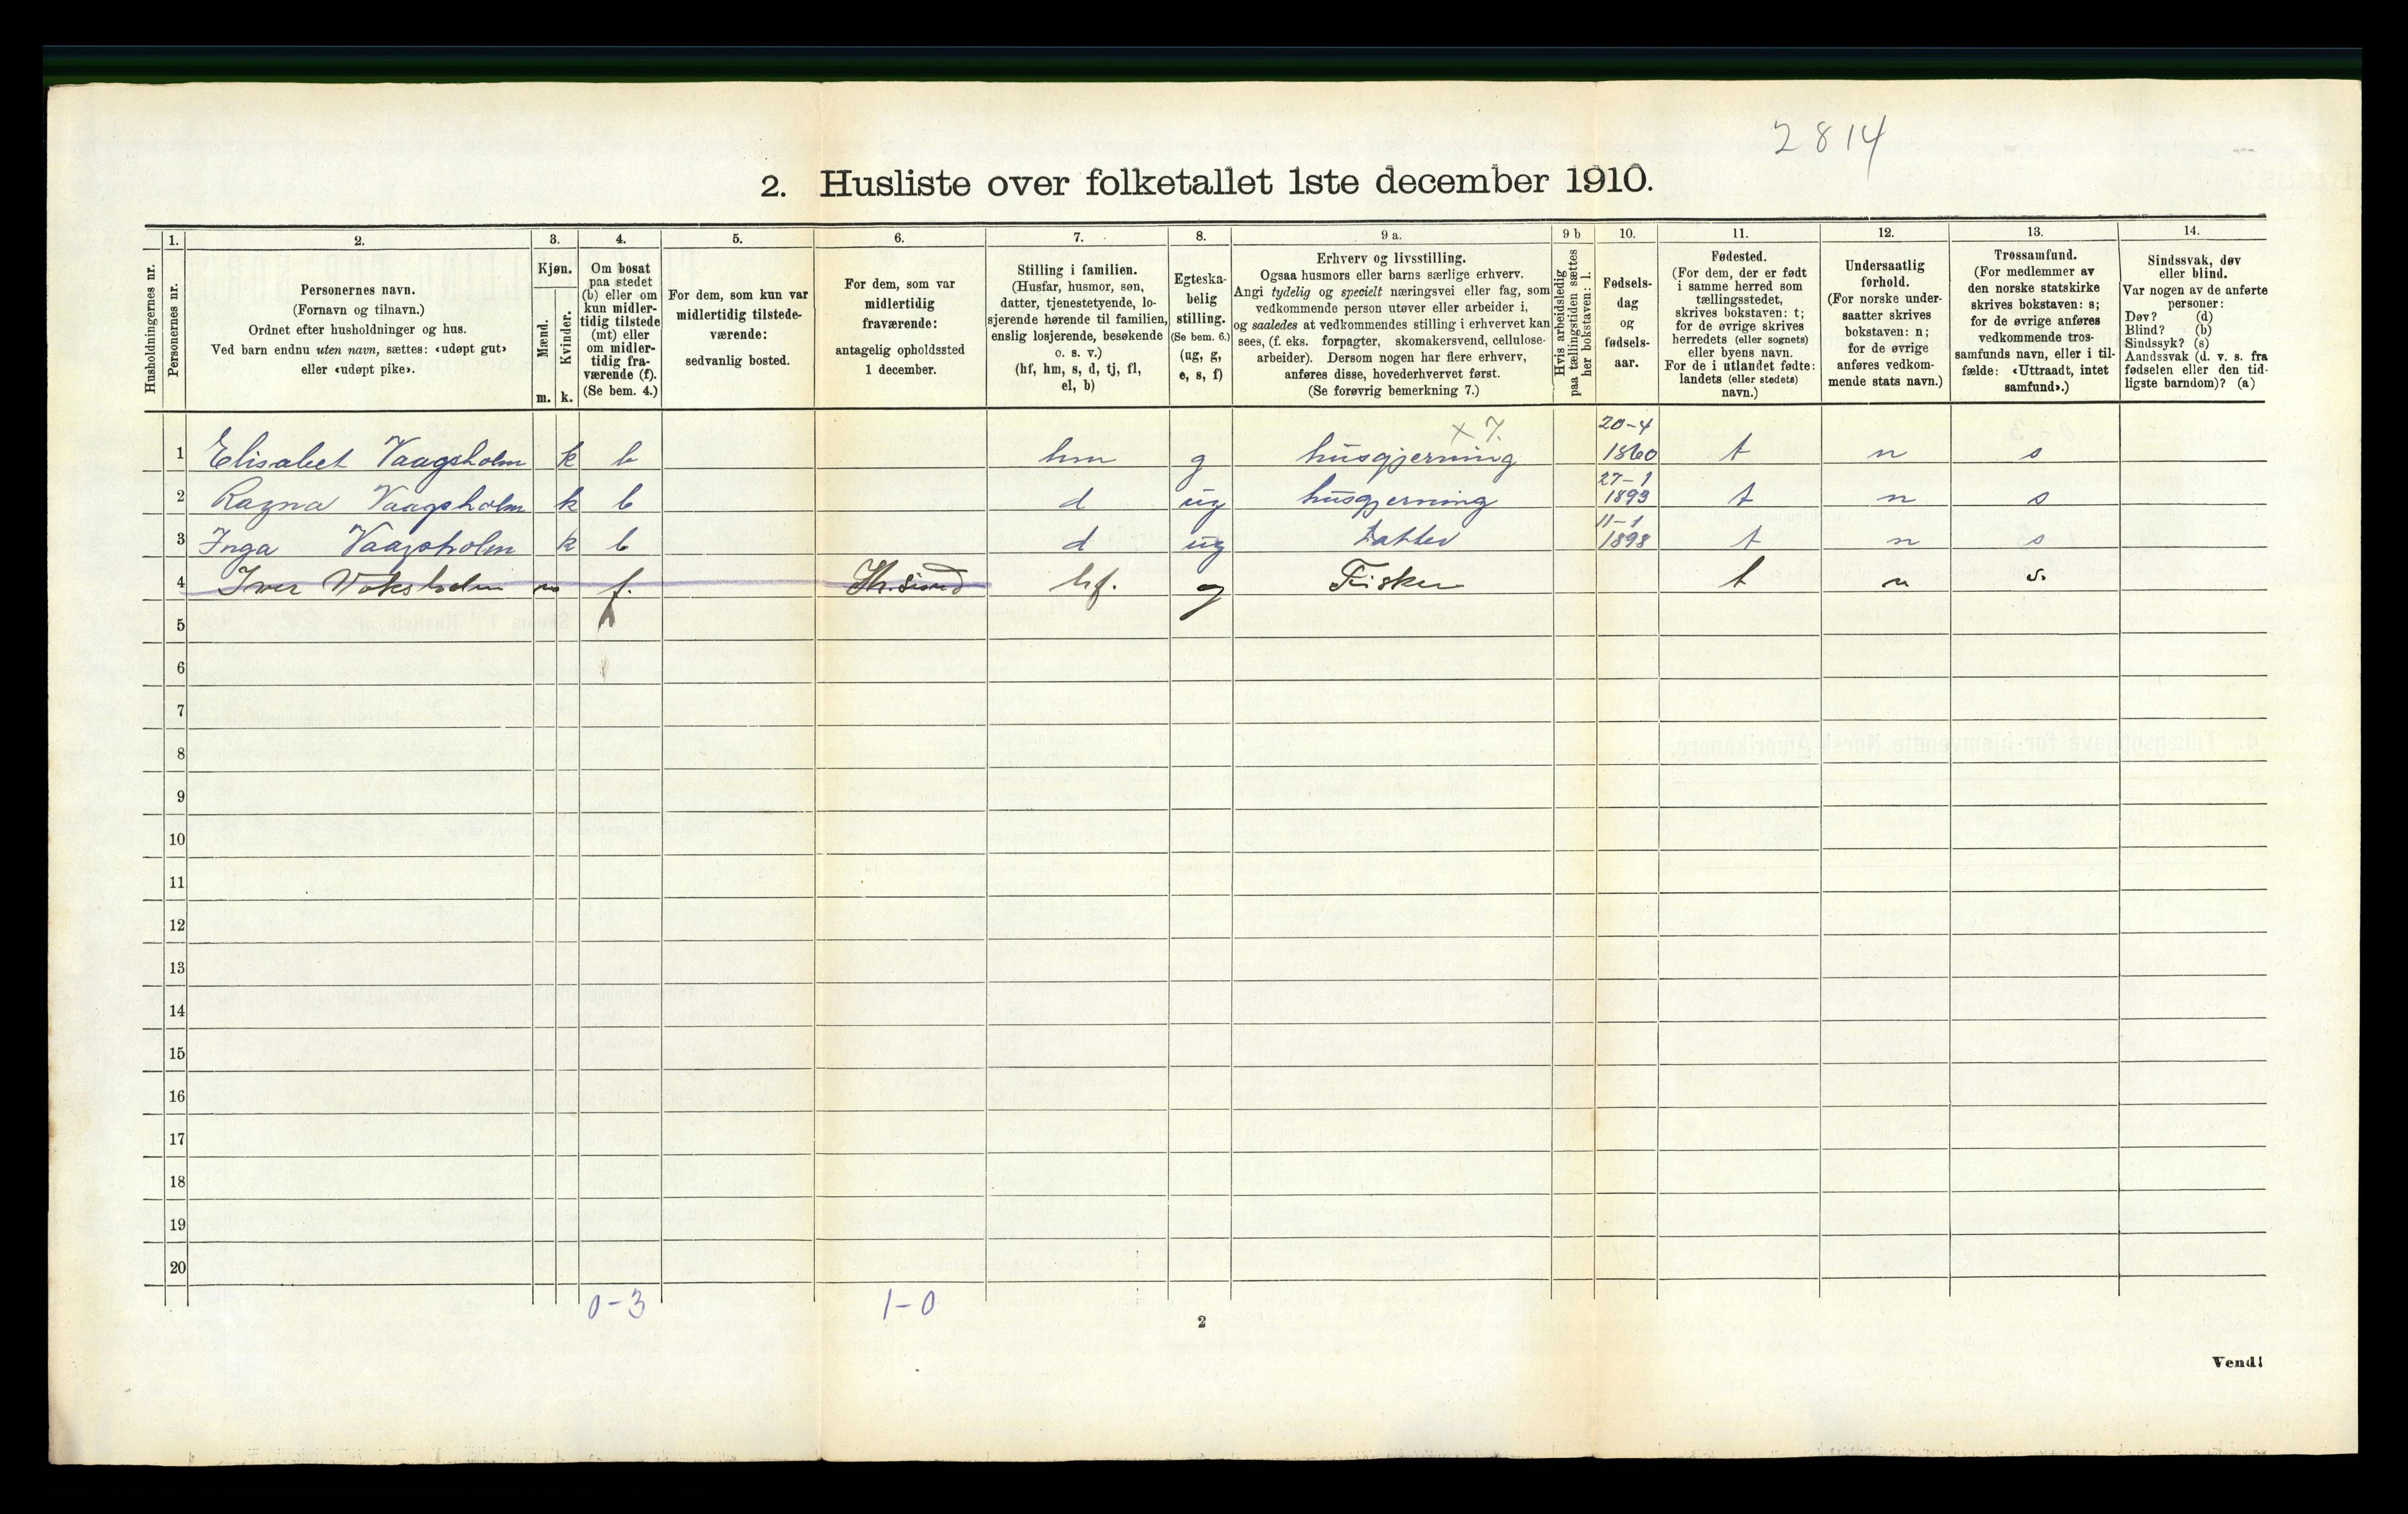 2814
2. Husliste over folketallet 1ste december 1910.
Husholdningernes nr.
1.
Personernes nr.
2.
Personernes navn.
(Fornavn og tilnavn.)
Ordnet efter husholdninger og hus.
Ved barn endnu uten navn, sættes: «udøpt gut»
eller «udøpt pike».
3.
Kjøn.
Mænd.
Kvinder.
m. k.
4.
Om bosat
paa stedet
(b) eller om
kun midler-
tidig tilstede
(mt) eller
om midler-
tidig fra-
værende (f).
(Se bem. 4.)
5.
For dem, som kun var
midlertidig tilstede-
værende:
sedvanlig bosted.
6.
For dem, som var
midlertidig
fraværende:
antagelig opholdssted
1 december.
7.
Stilling i familien.
(Husfar, husmor, søn,
datter, tjenestetyende, lo-
sjerende hørende til familien,
enslig losjerende, besøkende
o. s. v.)
(hf, hm, s, d, tj, fl,
el, b)
8.
Egteska-
belig
stilling.
(Se bem. 6.)
(ug, g,
e, s, f)
9 a.
Erhverv og livsstilling.
Ogsaa husmors eller barns særlige erhverv.
Angi tydelig og specielt næringsvei eller fag, som
vedkommende person utøver eller arbeider i,
og saaledes at vedkommendes stilling i erhvervet kan
sees, (f. eks. forpagter, skomakersvend, cellulose-
arbeider). Dersom nogen har flere erhverv,
anføres disse, hovederhvervet først.
(Se forøvrig bemerkning 7.)
9 b
Hvis arbeidsledig
paa tællingstiden sættes
her bokstaven: l.
10.
Fødsels-
dag
og
fødsels-
aar.
11.
Fødested.
(For dem, der er født
i samme herred som
tællingsstedet,
skrives bokstaven: t;
for de øvrige skrives
herredets (eller sognets)
eller byens navn.
For de i utlandet fødte:
landets (eller stedets)
navn.)
12.
Undersaatlig
forhold.
(For norske under-
saatter skrives
bokstaven: n;
for de øvrige
anføres vedkom-
mende stats navn.)
13.
Trossamfund.
(For medlemmer av
den norske statskirke
skrives bokstaven: s;
for de øvrige anføres
vedkommende tros-
samfunds navn, eller i til-
fælde: «Uttraadt, intet
samfund».)
14.
Sindssvak, døv
eller blind.
Var nogen av de anførte
personer:
Døv? (d)
Blind? (b)
Sindssyk? (s)
Aandssvak (d. v. s. fra
fødselen eller den tid-
ligste barndom)? (a)
x 7. 20-4
1 Elisabet Vaagsholm k b hm g husgjerning 1860 t n s
27-1
2 Ragna Vaagsholm k b d ug husgjerning 1893 t n s
11-1
3 Inga Vaagsholm k b d ug Datter 1898 t n s
4 Iver m f. hf. g Fisker t n s.
5
6
7
8
9
10
11
12
13
14
15
16
17
18
19
20
0-3 1-0
2
Vend!